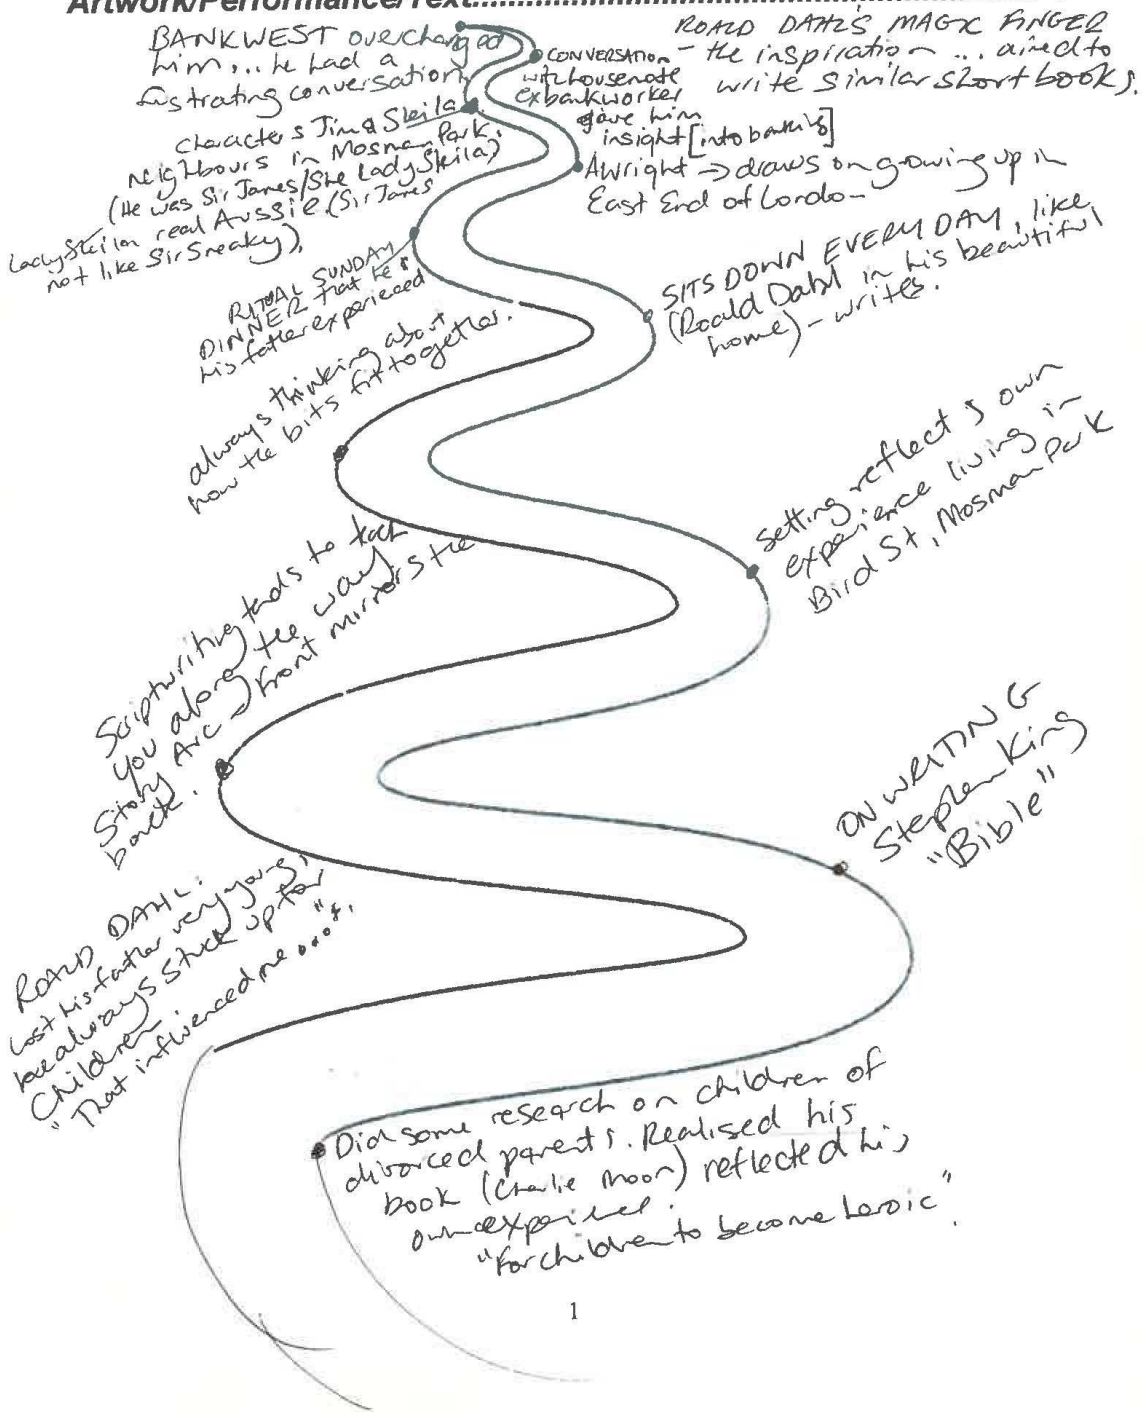 Artwork/Performance/Text
BANKWEST overcharged
him... he had a
frustrating conversation
ROALD DAHL'S MAGIC FINGER
- the inspiration ... aimed to
write similar short books.
CONVERSATION
with housemate
exbankworker
gave him
insight [into banking]
Characters Jim & Sheila
neighbours in Mosman Park.
(He was Sir James/She Lady Sheila)
Lady Sheila real Aussie. (Sir James
not like Sir Sneaky).
Awright → draws on growing up in
East End of London
RITUAL SUNDAY
DINNER that he &
his father experienced
SITS DOWN EVERY DAY, like
(Roald Dahl in his beautiful
home) - writes.
always thinking about
how the bits fit together.
setting reflects own
experience living in
Bird St, Mosman Park
Scriptwriting tends to
you along the way
Story Arc → front mirrors the
back.
ON WRITING
Stephen King
"Bible"
ROALD DAHL:
Lost his father very young,
he always stuck up for
Children
"That influenced me..."
Did some research on children of
divorced parents. Realised his
book (Charlie Moon) reflected his
own experience.
"For children to become heroic".
1